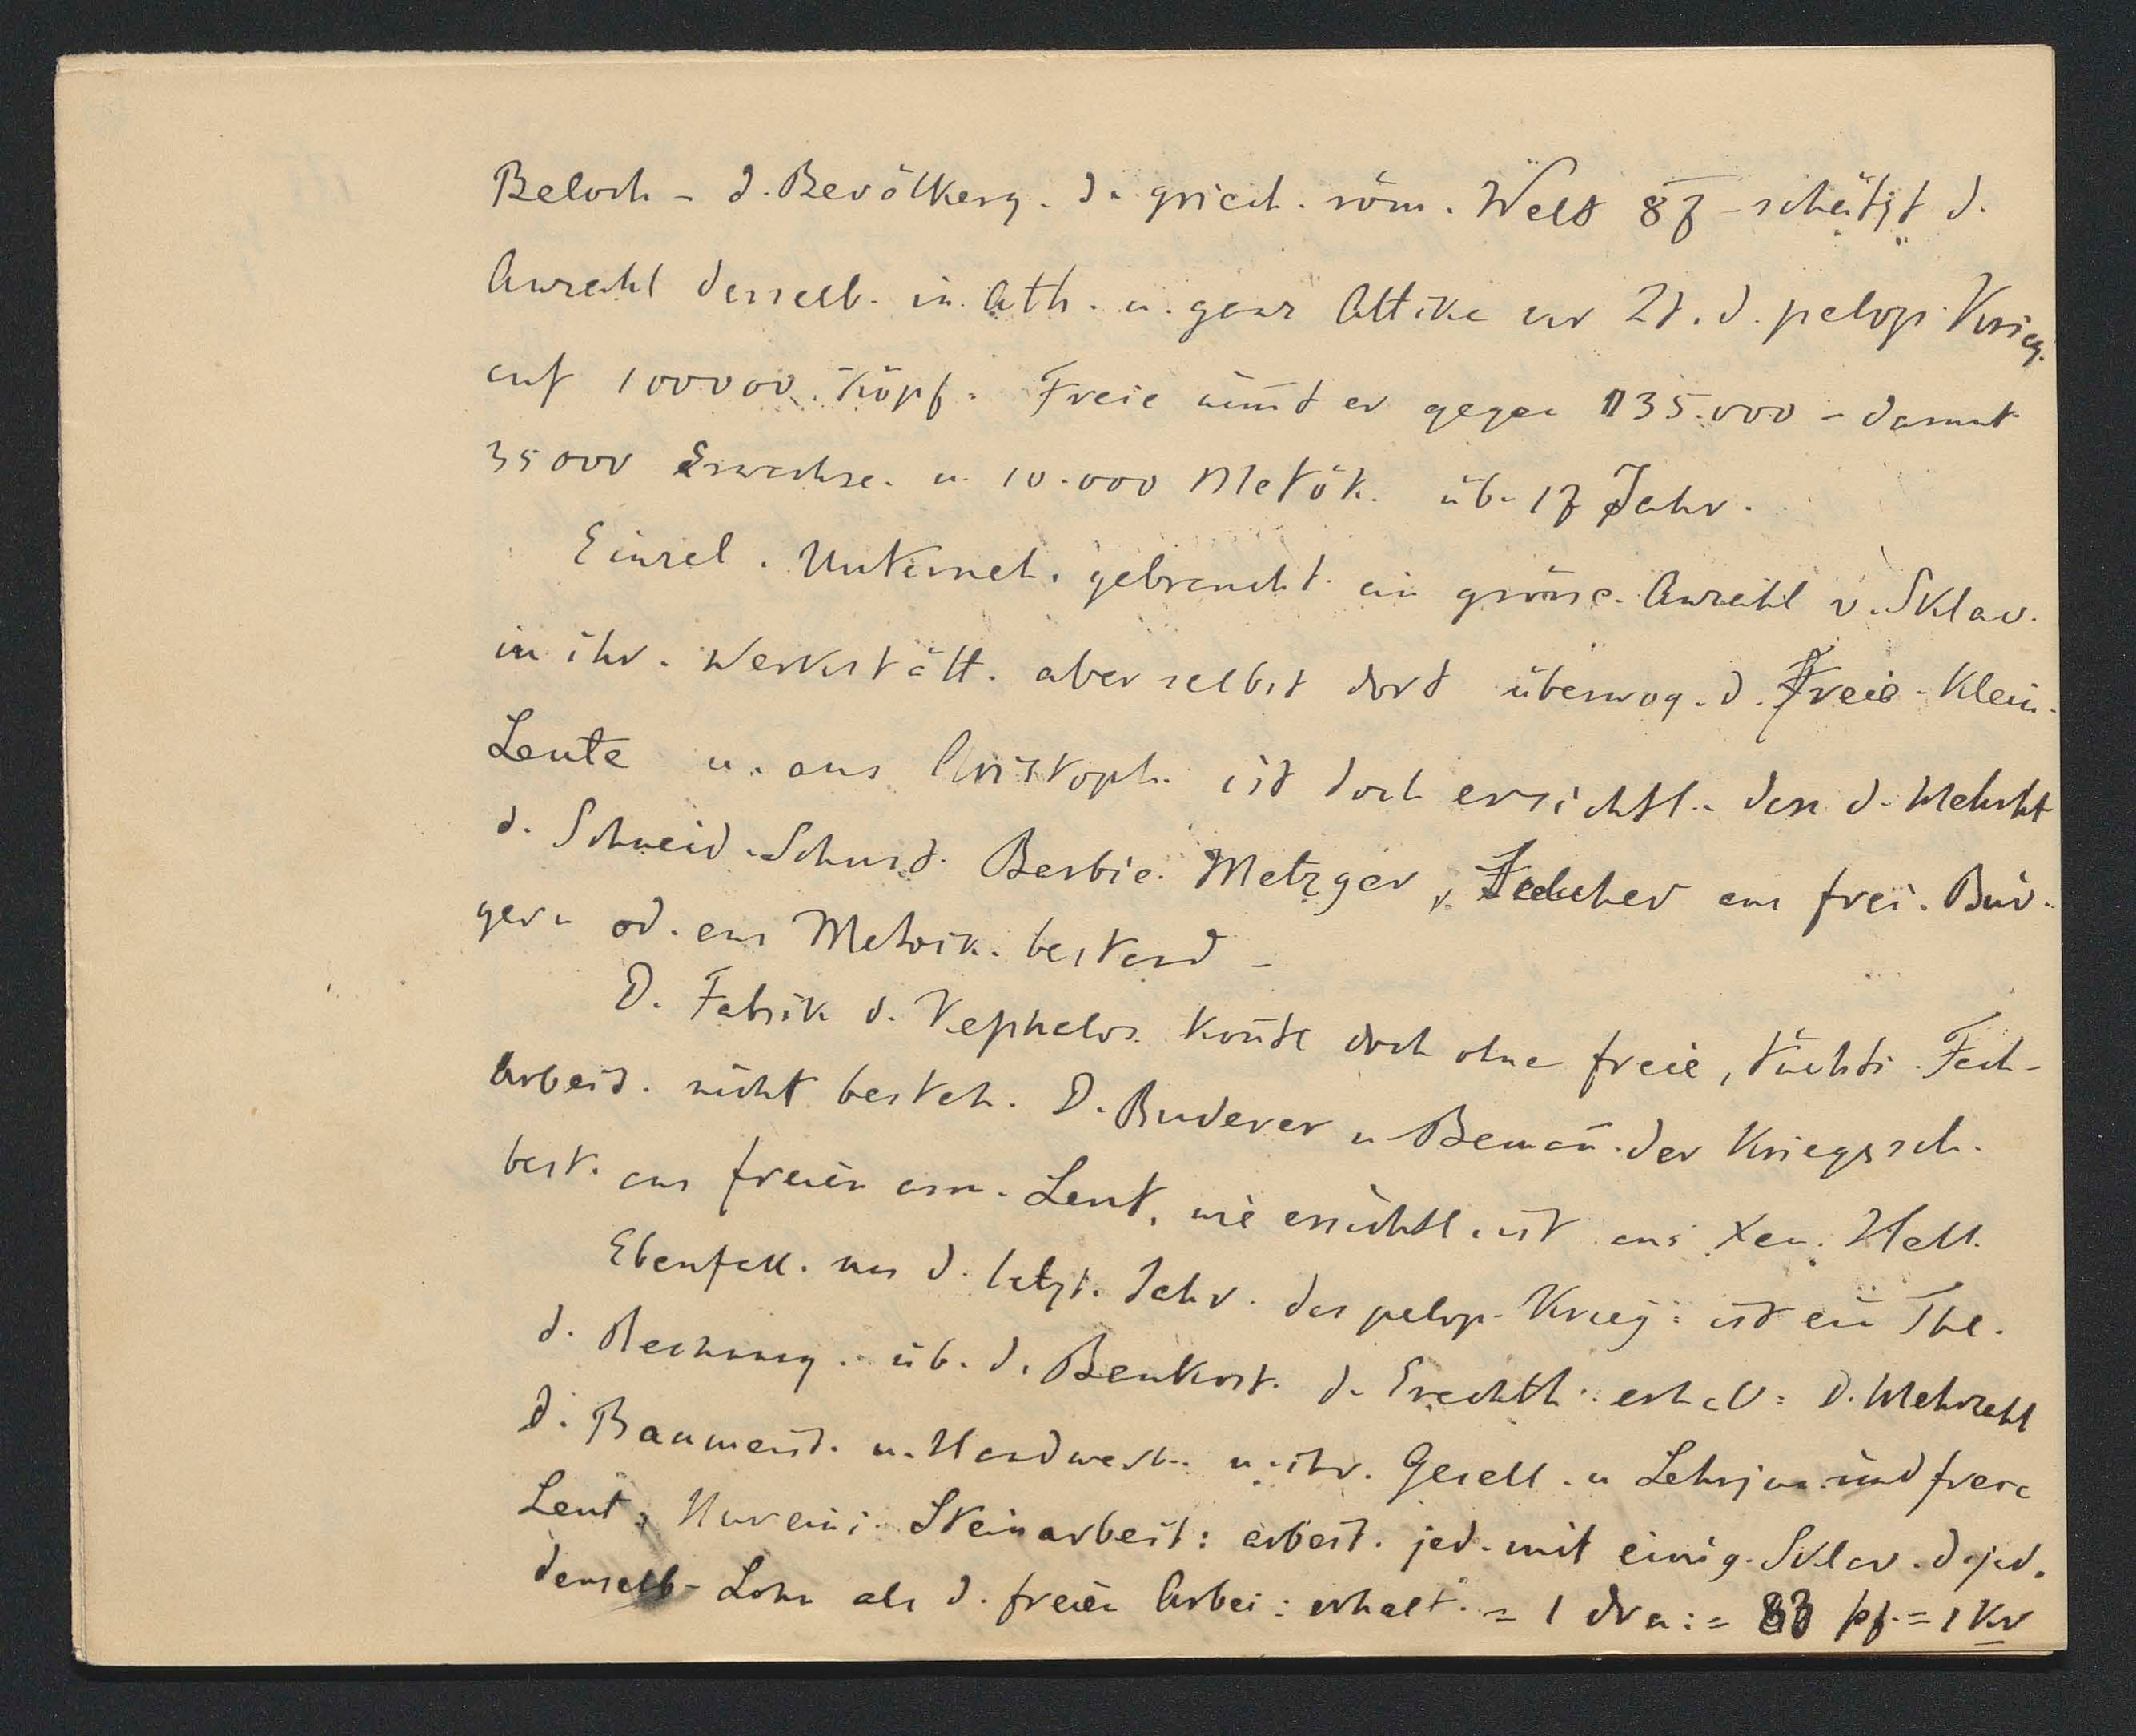 Beloch - d. Bevölkerg. d. griech. röm. Welt 87 - schätzt d.
Anzahl derselb. in Ath. u. ganz Attika zur Zt. d. pelop. Krieg.
auf 100000 Köpf. Freie nim̄t er gegen 135.000 - darunt
35000 Erwachse. u. 10.000 Metök. üb. 17 Jahr.
Einzel. Unterneh. gebraucht. ein grösse. Anzahl v. Sklav.
in ihr. Werkstätt. aber selbst dort überwog. d. Freie - Klein.
Leute u. aus Aristoph. ist doch ersichtl. dass d. Mehrht
d. Schneid. Schust. Barbie. Metzger, aus frei. Bür-
gern od. aus Metoik. bestand -
D. Fabrik d. Kephalos. kon̄te doch ohne freie, tüchti. Fach-
arbeit. nicht besteh. D. Ruderer u Beman̄. der Kriegssch.
best. aus freien arm. Leut, wie ersichtl. ist aus Xen. Hell.
Ebenfall. aus d. letzt. Jahr. des pelop. Krieg: ist ein Thl.
d. Rechnung. üb. d. Baukost. d. Erechth. erhalt: D. Mehrzahl
d. Baumeist. u. Handwerk. u. ihr. Gesell. u Lehrjun. sind freie
Leut, Nur eini. Steinarbeit: arbeit. jed. mit einig. Sklav. d. jed.
denselb- Lohn als d. freien Arbei: erhalt. = 1 dra: = 80 pf. = 1 Kr